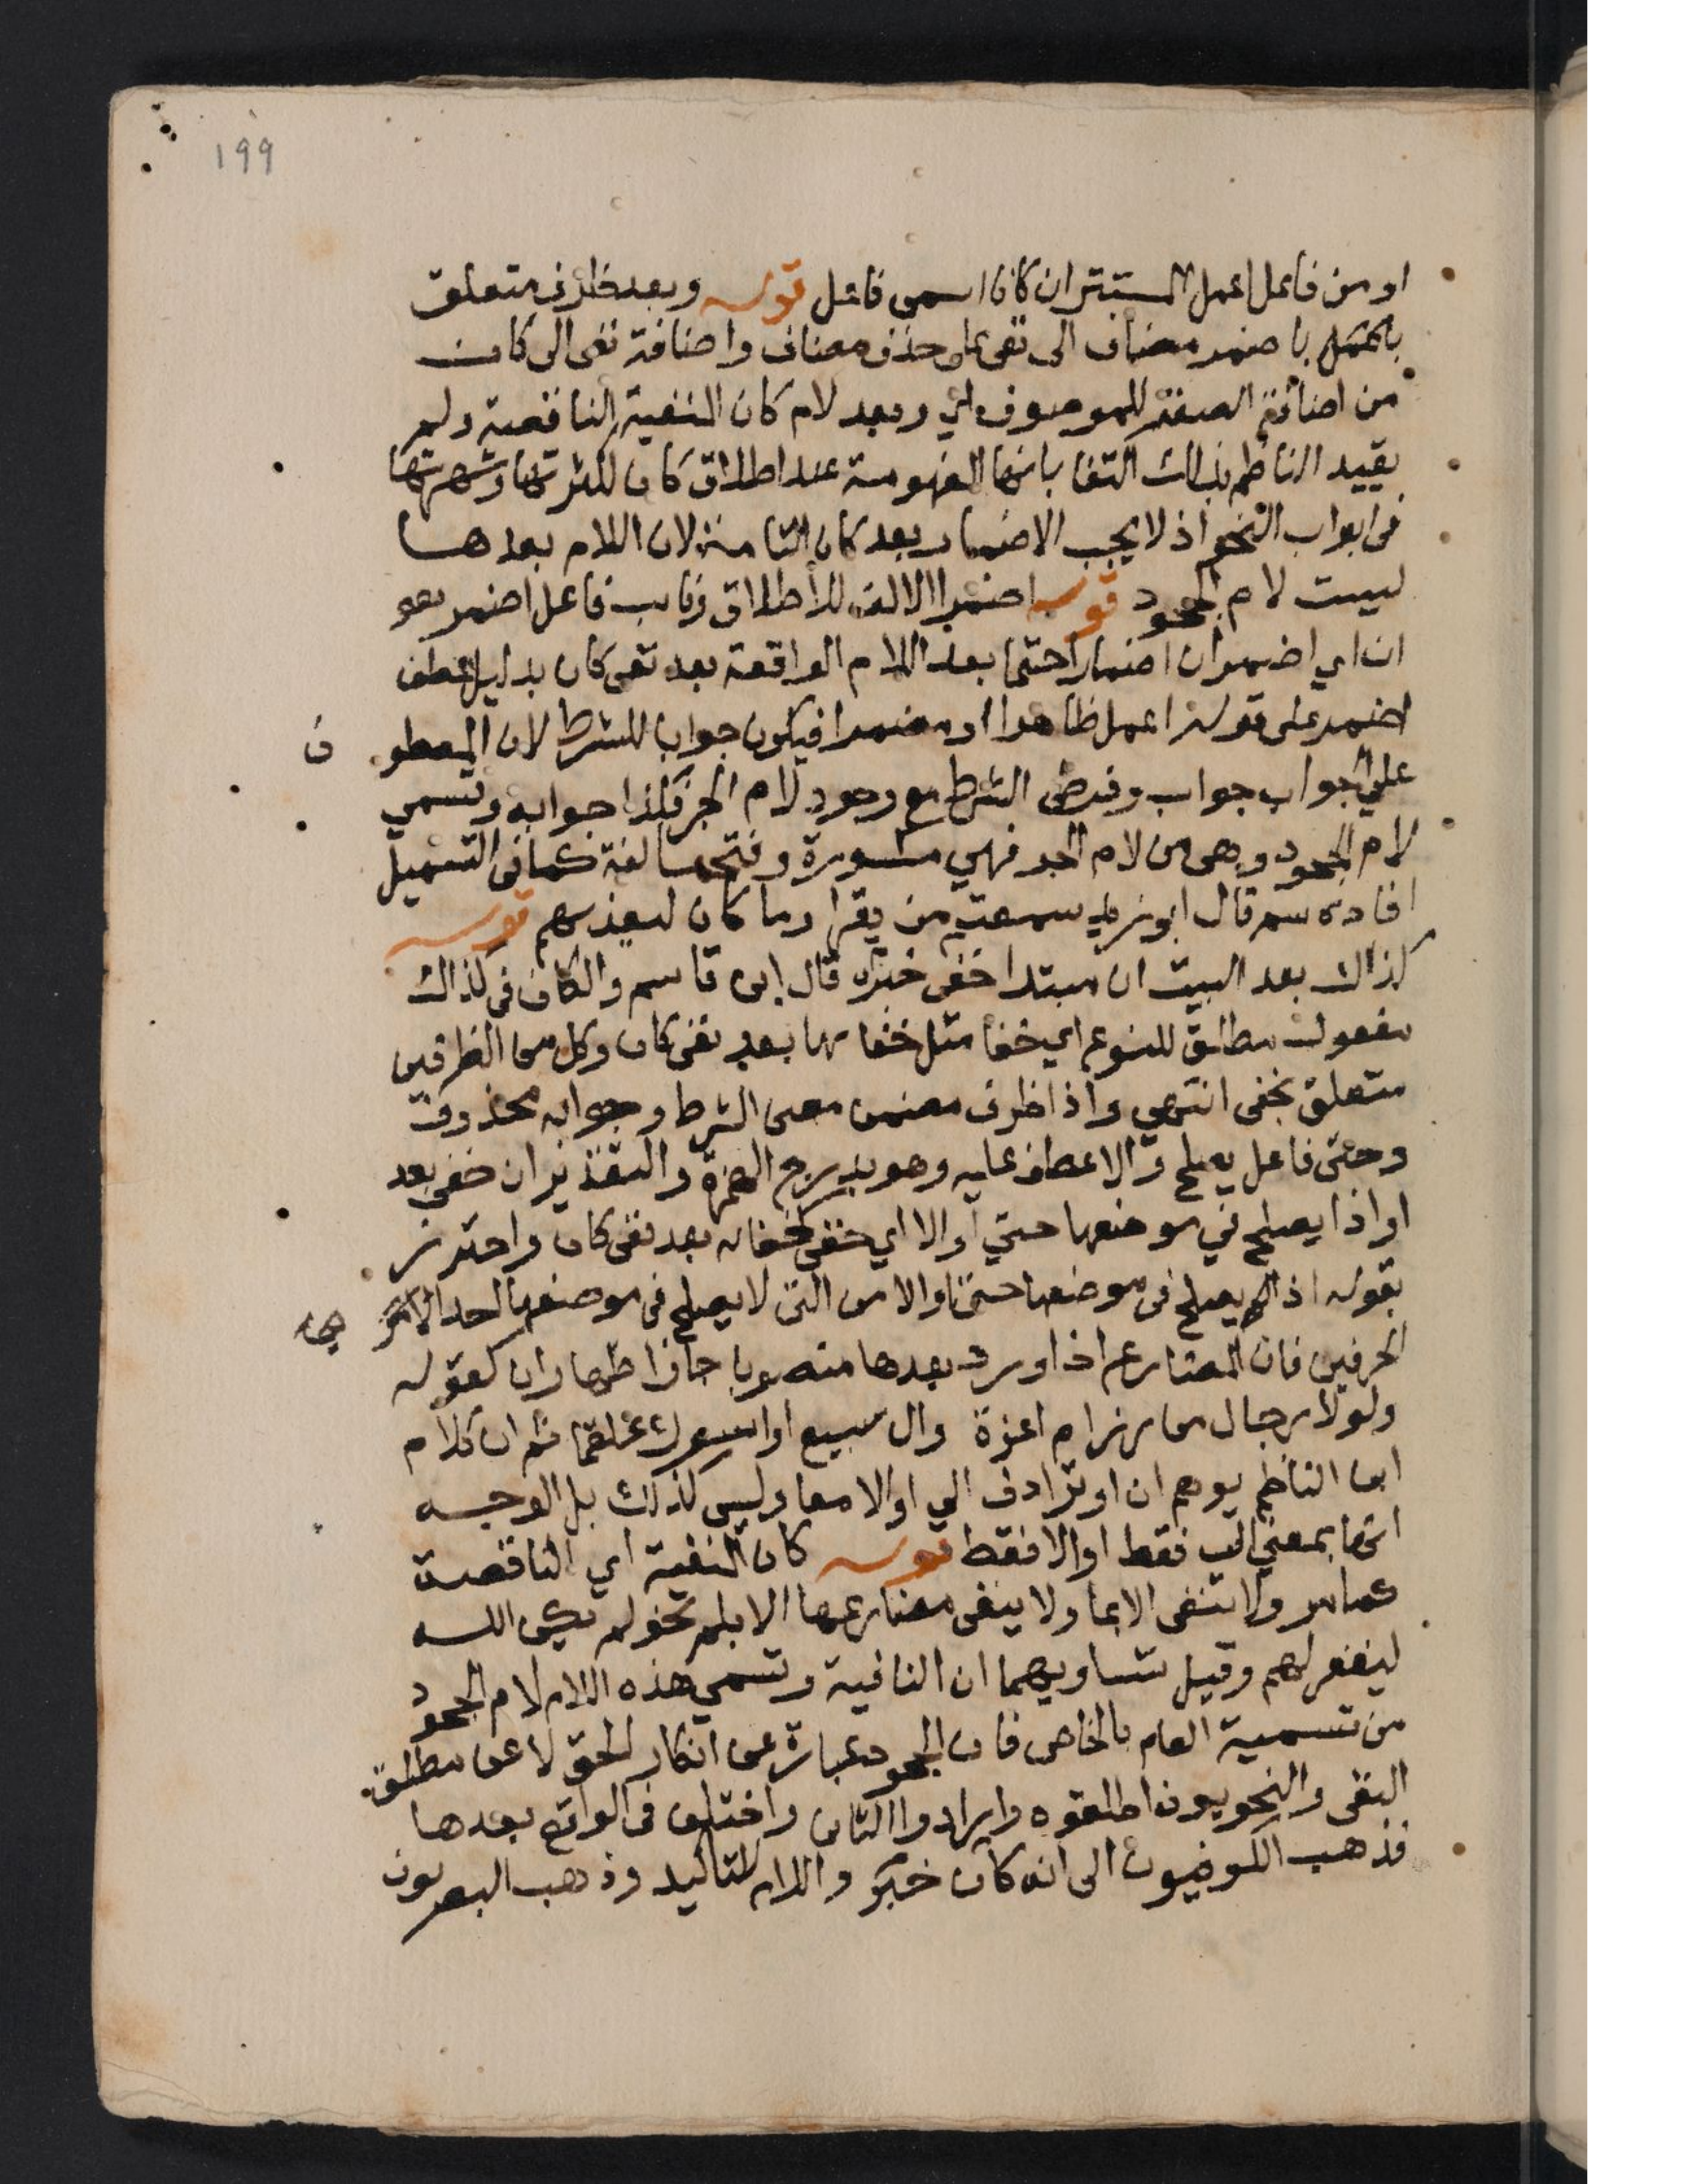 ١٩٩
او من فاعل اعمل المستتر ان كانا اسمى فاعل قوله وبعد ظرف متعلق
باضمر مضاف الى نفى على حذف مضاف واضافة نفى الى كان
من اضافة الصفة للموصوف اي وبعد لام كان المنفية الناقصة ولم
يقيد الناظم بذلك اكتفا بانها المفهومة عند اطلاق كان لكثرتها وشهرتها
فى ابواب النحو اذ لا يجب الاضمار بعد كان التامة لان اللام بعدها
ليست لام الجحود قوله اضمرا الالف للاطلاق ونايب فاعل اضمر هو
ان اي اضمر ان اضمارا حتما بعد اللام الواقعة بعد نفى كان بدليل عطف
اضمر على قوله اعمل ظاهرا او مضمرا فيكون جوابا للشرط لان المعطو ف
على الجواب جواب وفرض الشرط مع وجود لام الجر فكذا جوابه وتسمي
لام الجحود وهى من لام الجر فهي مكسورة وفتحها لغة كما فى التسهيل
افاده سم قال ابو زيد سمعت من يقرا وما كان ليعذبهم قوله
كذاك بعد البيت ان مبتدا خفى خبره قال ابن قاسم والكاف فى كذاك
مفعول مطلق للنوع اي خفا مثل خفايها بعد نفى كان وكل من الظرفين
متعلق بخفى انتهى واذا ظرف مضمن معنى الشرط وجوابه محذوف
وحتى فاعل يصلح والا عطف عليه وهو بدرج الهمزة والتقدير ان خفى بعد
او اذا يصلح في موضعها حتي او الا اي خفى كخفايه بعد نفى كان واحترز
بقوله اذا يصلح فى موضعها حتى او الا من التى لا يصلح فى موضعها احد
الحرفين فان المضارع اذا ورد بعدها منصوبا جاز اظهار ان كقوله
ولولا رجال من رزام اعزة وال سبيع او اسوءك علقما ثم ان كلام
ابن الناظم يوهم ان او ترادف الي او الا معا وليس كذلك بل الوجه
انها بمعني الي فقط او الا فقط قوله كان المنفية اي الناقصة
كما مر ولا تنفى الا بما ولا ينفى مضارعها الا بلم نحو لم يكن الله
ليغفر لهم وقيل تساويهما ان النافية وتسمي هذه اللام لام الجحود
من تسمية العام بالخاص فان الجحود عبارة عن انكار الحق لا عن مطلق
النفى والنحويون اطلقوه وارادوا الثانى واختلف فى الواقع بعدها
فذهب الكوفيون الى انه كان خبر واللام للتاكيد وذهب البصريون